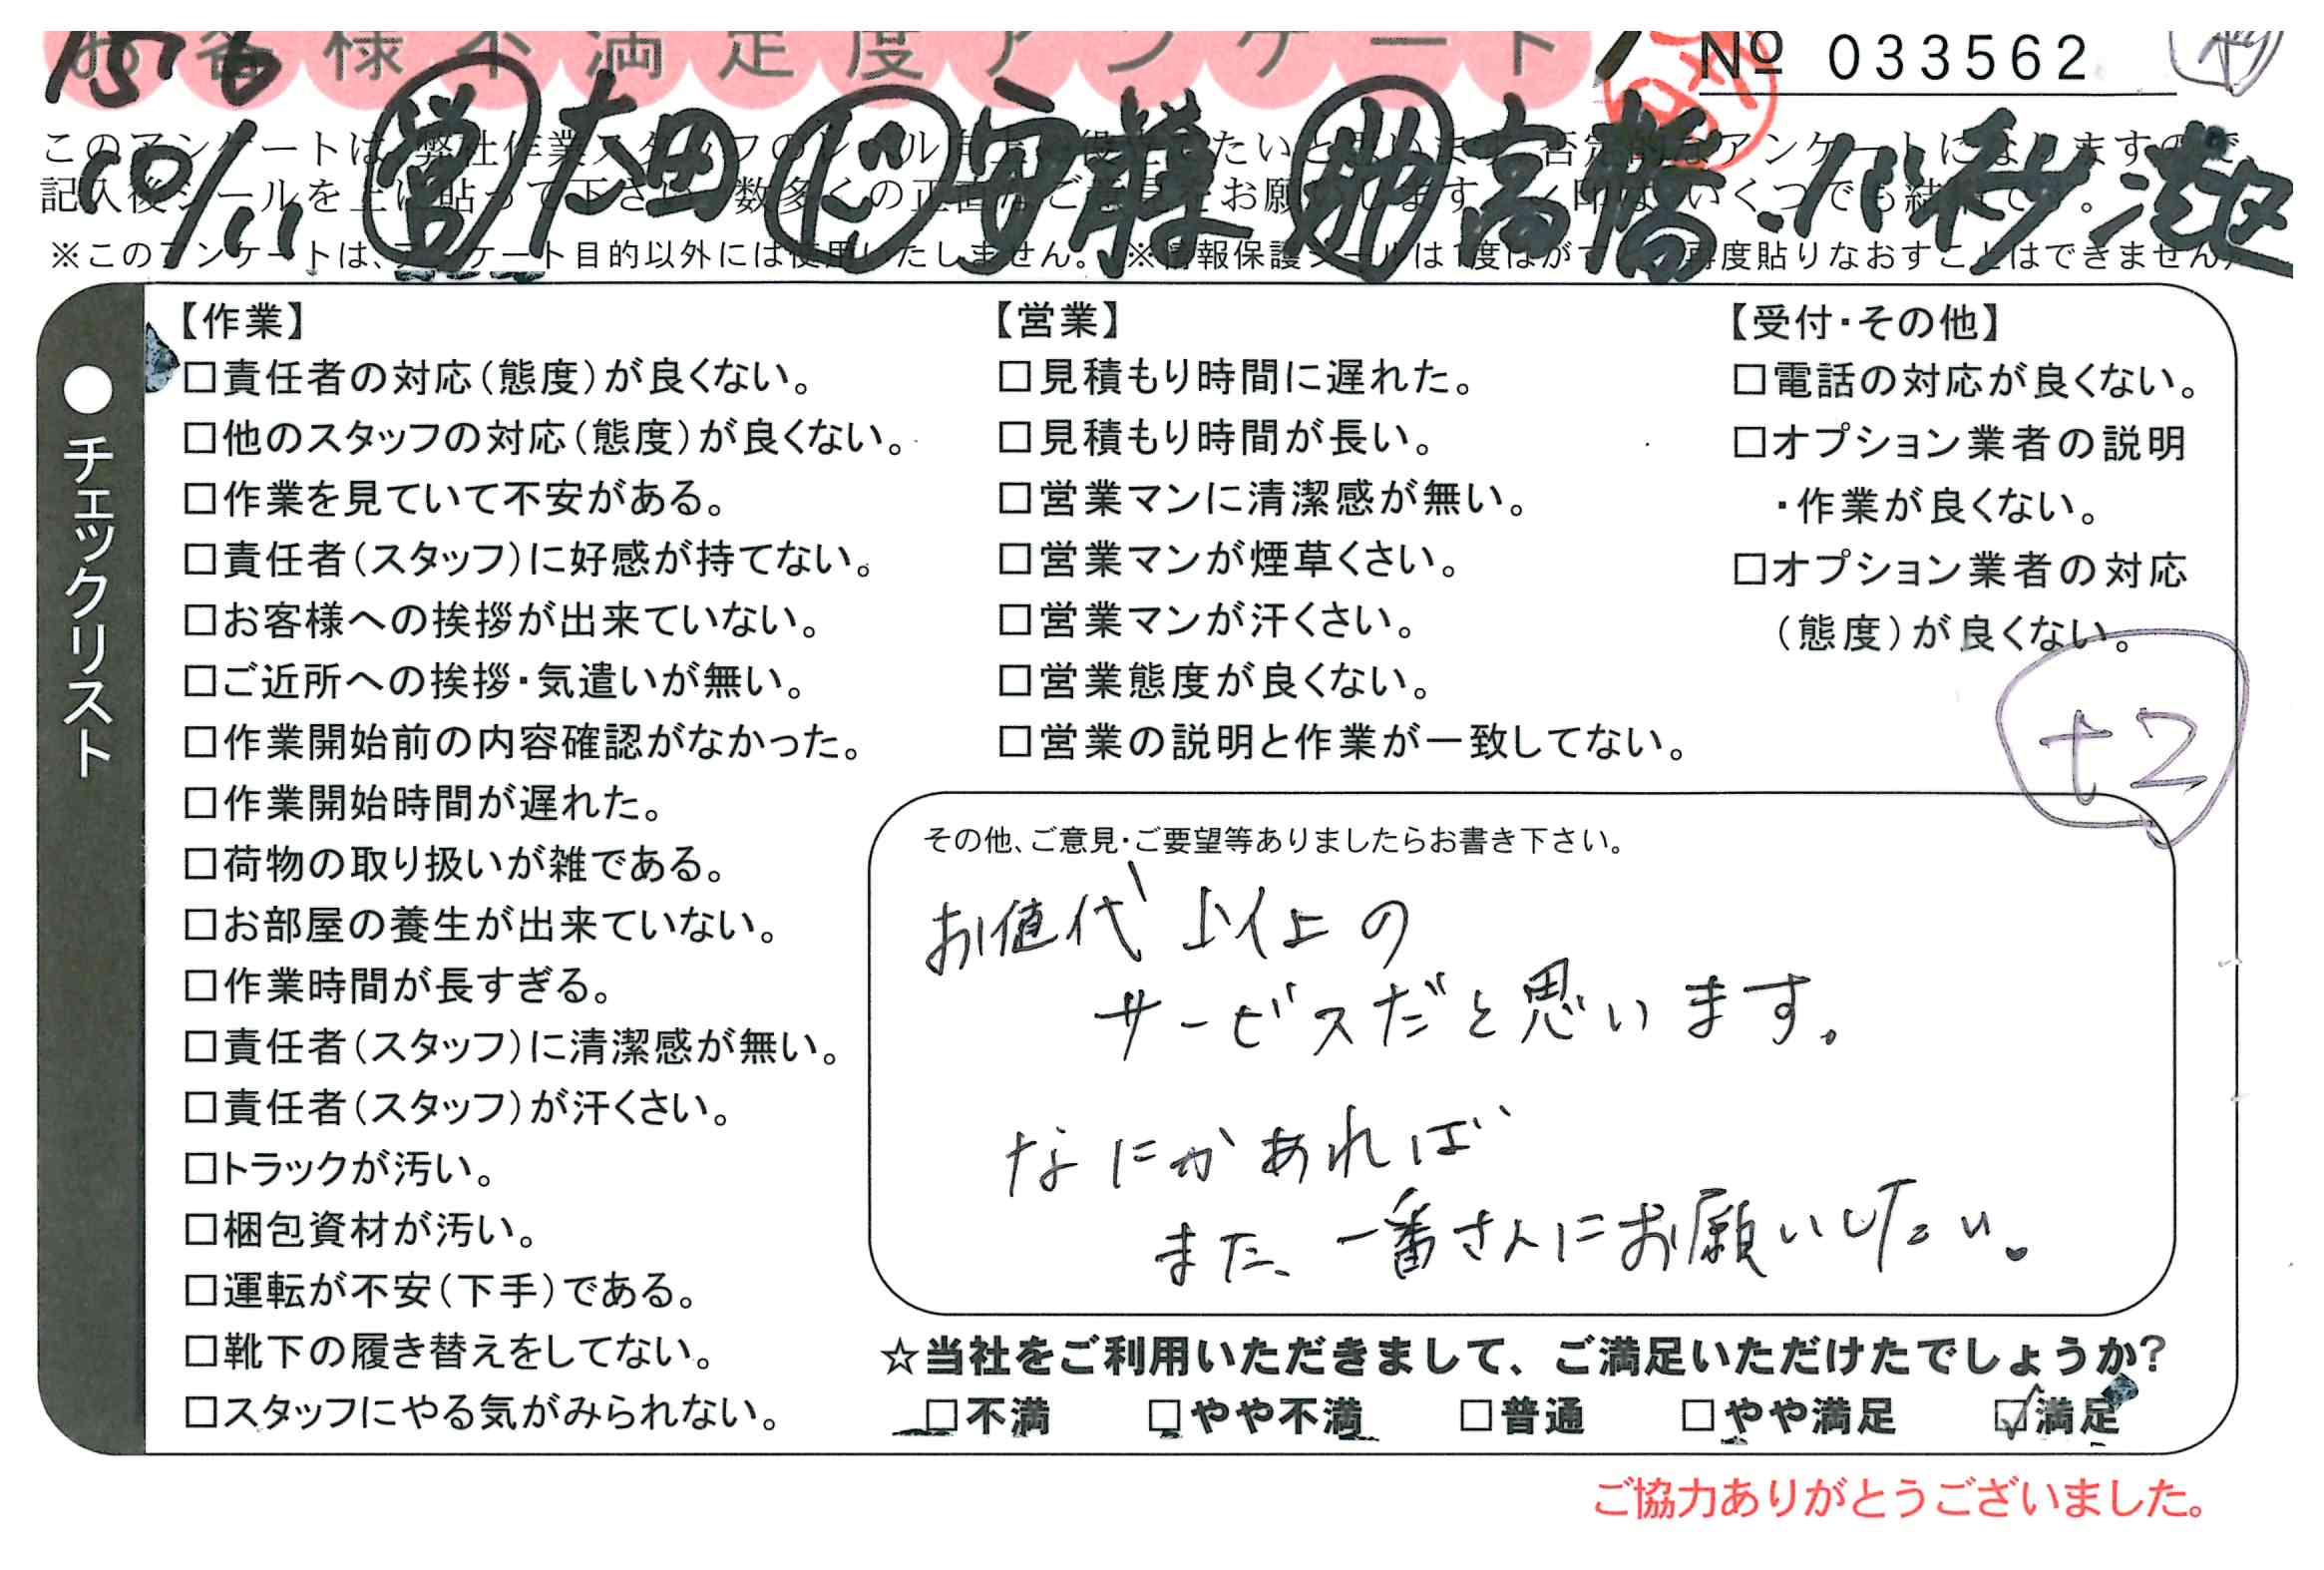 お客様不満足度アンケート
№ 033562
10/11 営 太田 ド 安藤 助 高橋
※このアンケートは、アンケート目的以外には使用いたしません。 ※情報保護シールは1度はがすと再度貼りなおすことはできません
●チェックリスト
【作業】
□責任者の対応(態度)が良くない。
□他のスタッフの対応(態度)が良くない。
□作業を見ていて不安がある。
□責任者(スタッフ)に好感が持てない。
□お客様への挨拶が出来ていない。
□ご近所への挨拶・気遣いが無い。
□作業開始前の内容確認がなかった。
□作業開始時間が遅れた。
□荷物の取り扱いが雑である。
□お部屋の養生が出来ていない。
□作業時間が長すぎる。
□責任者(スタッフ)に清潔感が無い。
□責任者(スタッフ)が汗くさい。
□トラックが汚い。
□梱包資材が汚い。
□運転が不安(下手)である。
□靴下の履き替えをしてない。
□スタッフにやる気がみられない。
【営業】
□見積もり時間に遅れた。
□見積もり時間が長い。
□営業マンに清潔感が無い。
□営業マンが煙草くさい。
□営業マンが汗くさい。
□営業態度が良くない。
□営業の説明と作業が一致してない。
【受付・その他】
□電話の対応が良くない。
□オプション業者の説明
・作業が良くない。
□オプション業者の対応
(態度)が良くない。
+2
その他、ご意見・ご要望等ありましたらお書き下さい。
お値代以上の
サービスだと思います。
なにかあれば
また、一番さんにお願いしたい。
☆当社をご利用いただきまして、ご満足いただけたでしょうか?
□不満 □やや不満 □普通 □やや満足 ☑満足
ご協力ありがとうございました。